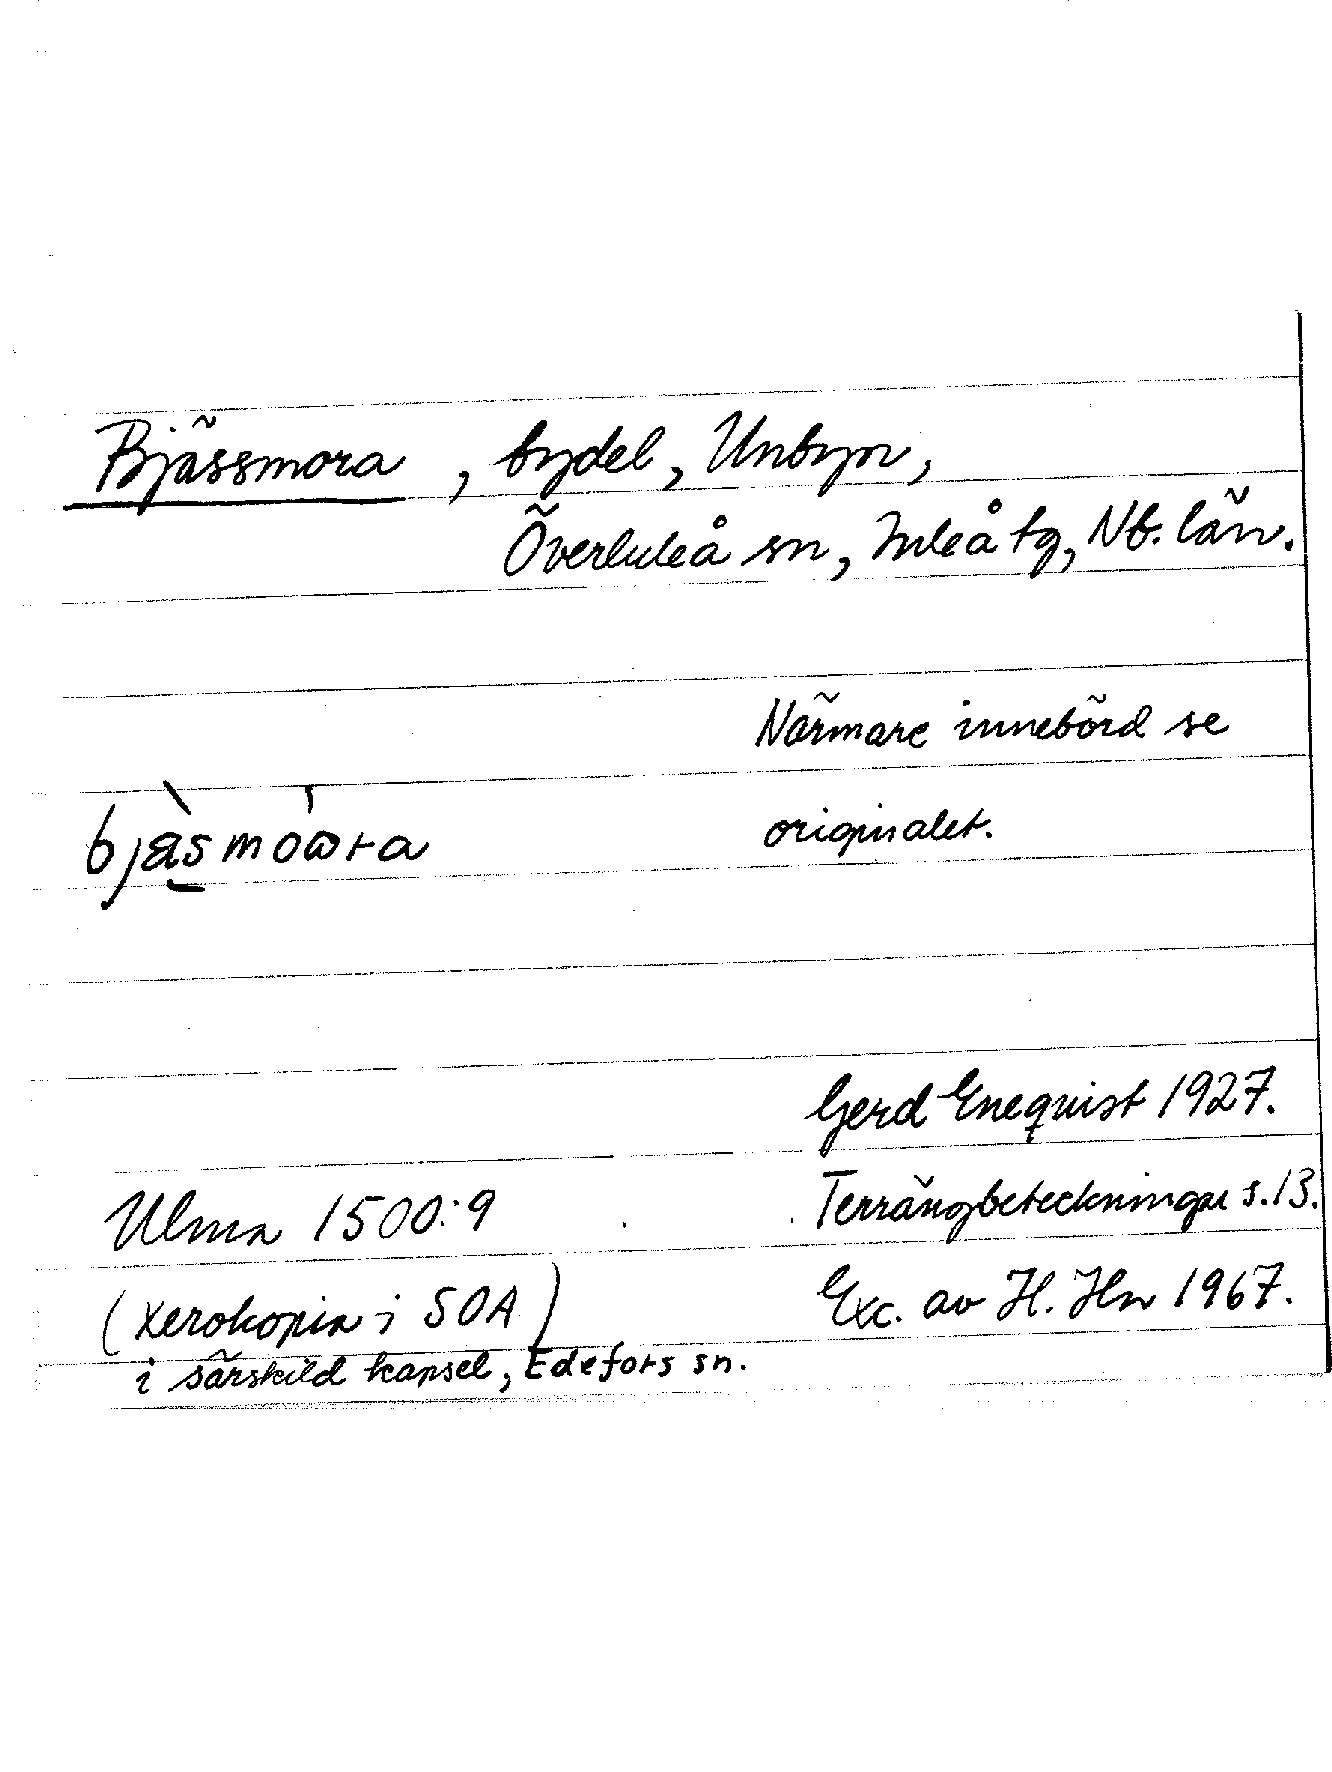 Bjässmora, bydel, Unbyn,
Överluleå sn, Luleå tg, Nb. län.
Närmare innebörd se
originalet.
Gerd Enequist 1927.
Ulma 1500:9
Terrängbeteckningar s. 13.
(Xerokopia i SOA)
Exc. av H. Hn 1967.
i särskild kapsel, Edefors sn.